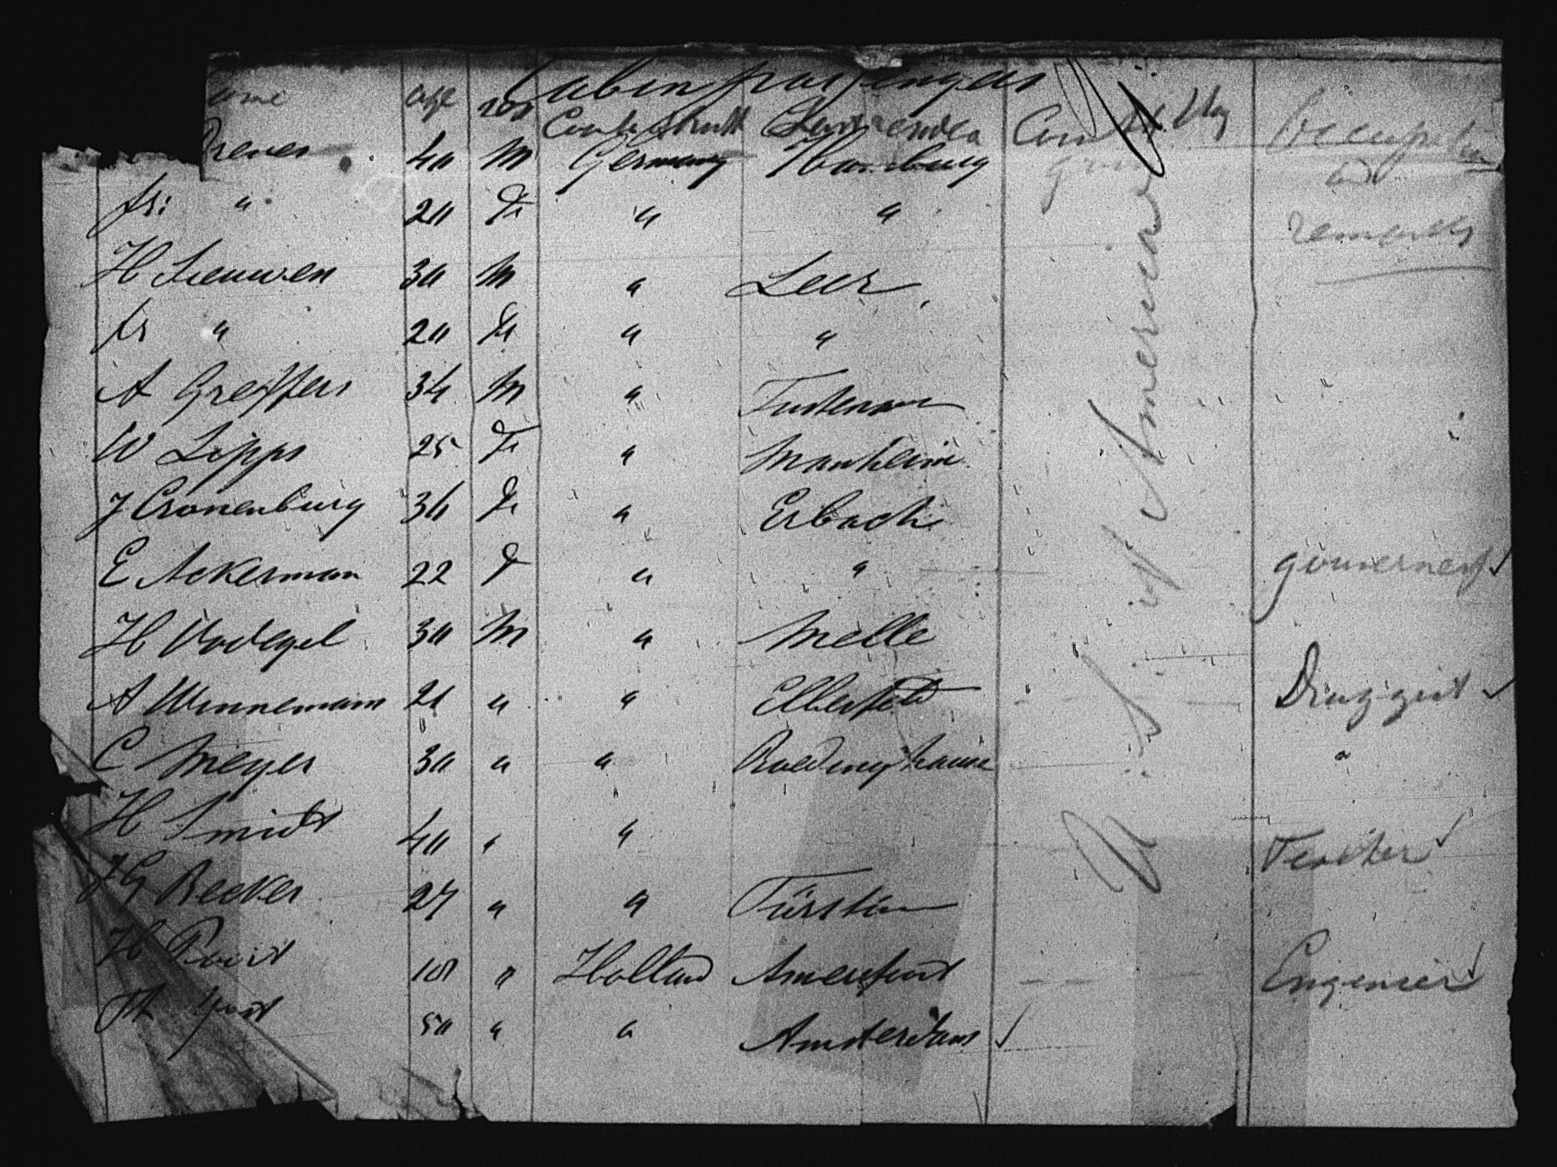 Cabin passengers
ome age sex Country Last residence Country Occupation
Drever 40 M Germany Hamburg and
fr: " 20 Fr " " remarks
H Lieuwen 30 M " Leer
fr " 20 Fr " "
A Greffers 34 M " Furstenau
W Lipps 25 Fr " Manheim
J Cronenburg 36 Fr " Erbach
E Ackerman 22 F " " gouverness
H Vodegel 30 M " Melle
A Wennemann 21 " " Elberfeld Druggist
C Meyer 30 " " Roedinghause "
H Smidt 40 " " Teacher
J G Becker 27 " " Fürstin
H Poort " Holland Amersfoort Engenier
50 " " Amsterdam
U. S. of America